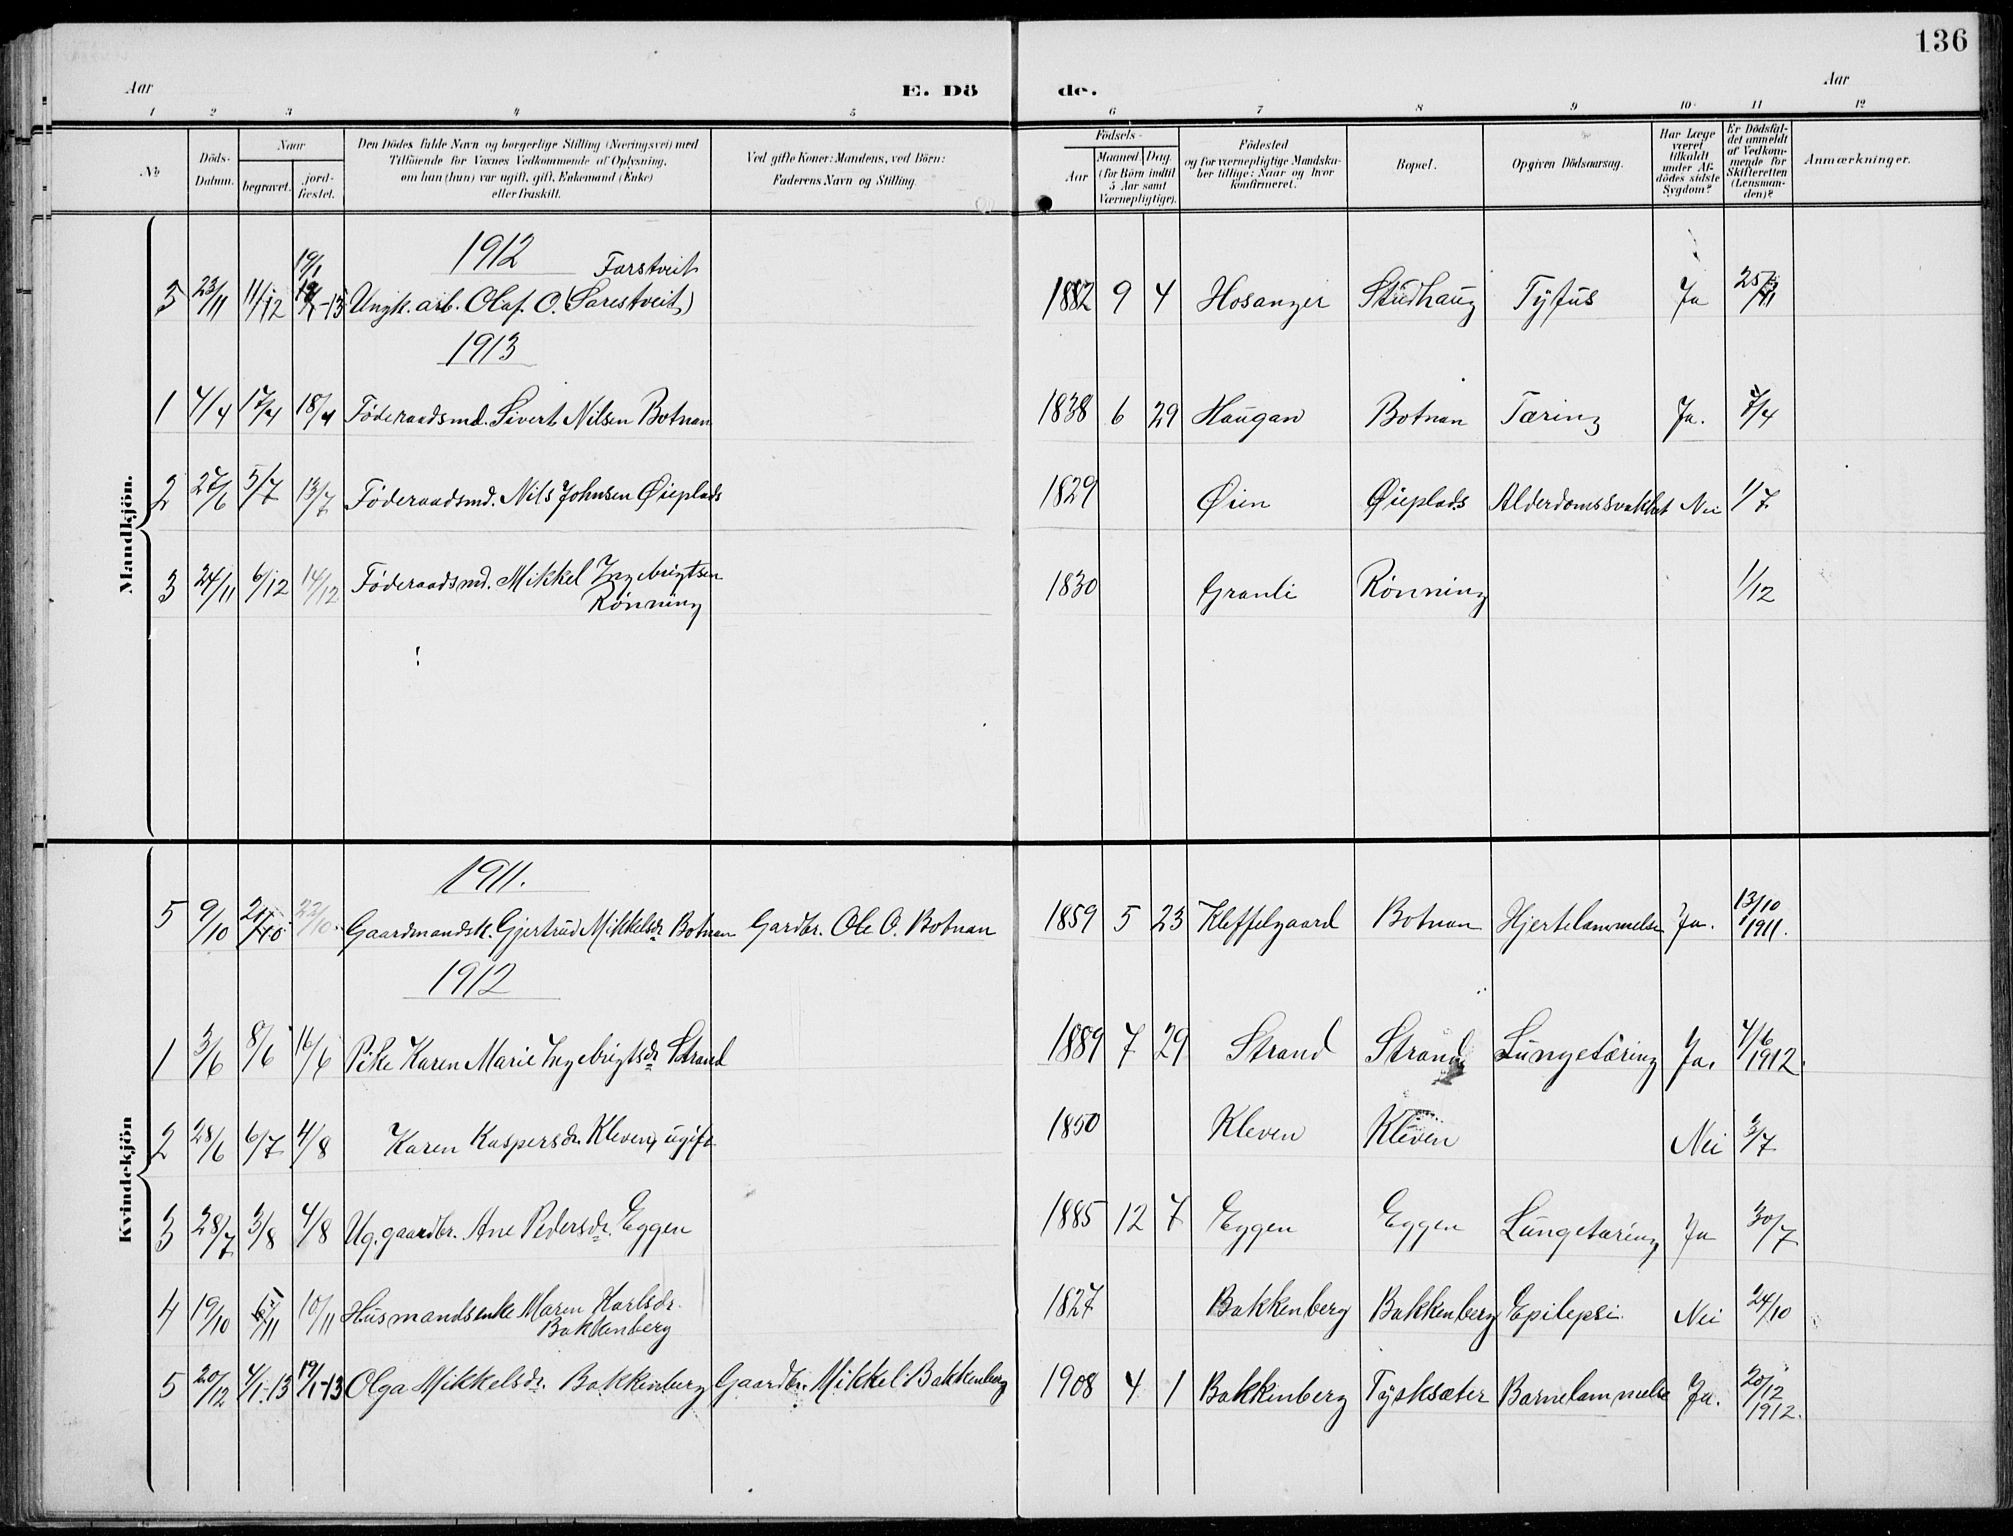 136
Aar
E. Dö
de.
Aar
1 2 3 4 5 6 7 8 9 10 11 12
No
Döds-Datum.
Naar
begravet.
jord-fæstet.
Den Dödes fulde Navn og borgerlige Stilling (Næringsvei) med
Tilföiende for Voxnes Vedkommende af Oplysning,
om han (hun) var ugift, gift, Enkemand (Enke)
eller fraskilt.
Ved gifte Koner: Mandens, ved Börn:
Faderens Navn og Stilling.
Födsels-
Aar
Maaned Dag
(for Börn indtil
5 Aar samt
Værnepligtige).
Födested
og for værnepligtige Mandska-
ber tillige: Naar og hvor
konfirmeret.
Bopæl.
Opgiven Dödsaarsag.
Har Læge
været
tilkaldt
under Af-
dödes sidste
Sygdom?
Er Dödsfal-
det anmeldt
af Vedkom-
mende for
Skifteretten
(Lensman-
den)?
Anmærkninger.
Mandkjön.
1912
Farstveit
5 23/11 11/12 19/1-13 Ungk. arb. Olaf. O. (Sarestveit) 1882 9 4 Hosanger Studhaug Tyfus Ja 25/11
1913
1 4/4 17/4 18/4 Föderaadsmd. Sivert Nilsen Botnan 1838 6 29 Haugan Botnan Tæring Ja. 7/4
2 27/6 5/7 13/7 Föderaadsmd. Nils Johnsen Øieplads 1829 Øien Øieplads Alderdomssvakhet Nei 1/7
3 24/11 6/12 14/12 Föderaadsmd. Mikkel Ingebrigtsen 1830 Granli Rönning 1/12
Rönning
Kvindekjön
1911.
5 9/10 21/10 22/10. Gaardmandsk. Gjertrud Mikkelsdr Botnan Gardbr. Ole O. Botnan 1859 5 23 Kleffelgaard Botnan Hjertelammelse Ja. 13/10 1911.
1912
1 3/6 8/6 16/6 Pike Karen Marie Ingebrigtsdr Strand 1889 7 29 Strand Strand Lungetæring Ja. 4/6 1912.
2 28/6 6/7 4/8 Karen Kaspersdr. Kleven, ugift 1850 Kleven Kleven Nei 3/7
3 28/7 3/8 4/8 Ug. gaardbr. Ane Pedersdr. Eggen 1885 12 7 Eggen Eggen Lungetæring Ja 30/7
4 19/10 /11 10/11 Husmandsenke Maren Karlsdr. 1827 Bakkenberg Bakkenberg Epilepsi Nei 24/10
Bakkenberg
5 20/12 4/1-13 19/1-13 Olga Mikkelsdr. Bakkenberg Gaardbr. Mikkel Bakkenberg 1908 4 1 Bakkenberg Tysksæter Barnelammelse Ja. 20/12 1912.